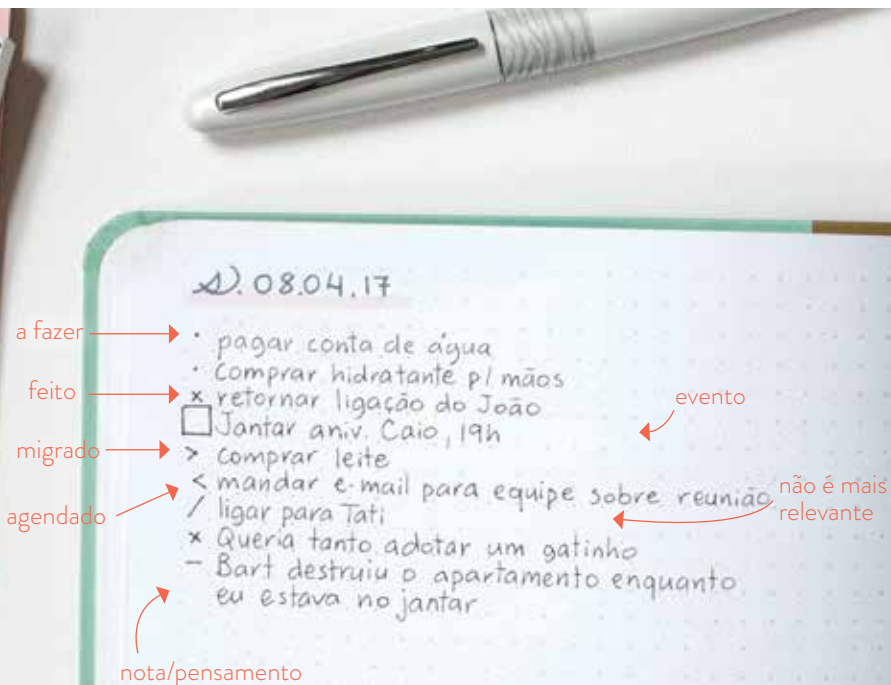 S. 08.04.17
a fazer
• pagar conta de água
• Comprar hidratante p/ mãos
feito
x retornar ligação do João
evento
□ Jantar aniv. Caio, 19h
migrado
> comprar leite
agendado
< mandar e-mail para equipe sobre reunião
não é mais
relevante
/ ligar para Tati
x Queria tanto adotar um gatinho
– Bart destruiu o apartamento enquanto
eu estava no jantar
nota/pensamento